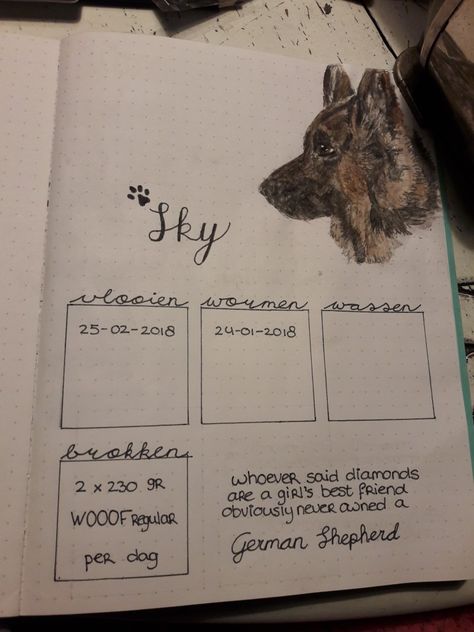 Sky
vlooien wormen wassen
25-02-2018 24-01-2018
brokken
2 x 230 gr
WOOOF Regular
per dag
whoever said diamonds
are a girl's best friend
obviously never owned a
German Shepherd